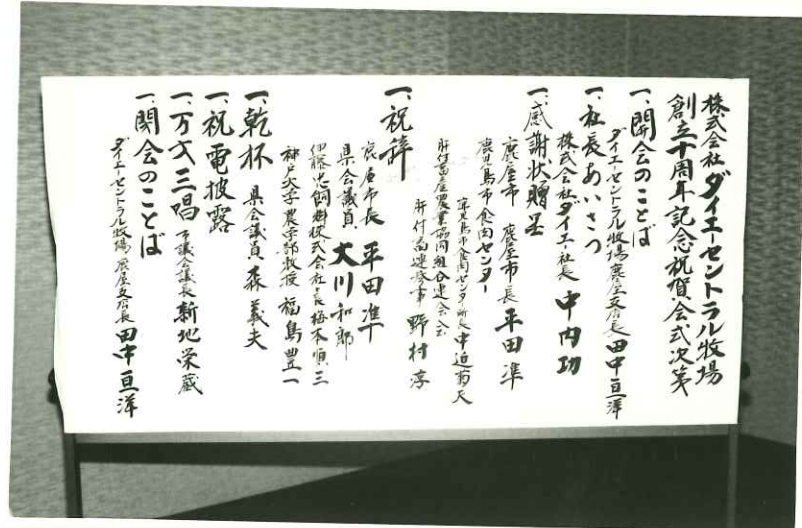 株式会社ダイエーセントラル牧場
創立十周年記念祝賀会式次第
一、開会のことば
ダイエーセントラル牧場鹿屋支店長 田中亘洋
一、社長あいさつ
株式会社ダイエー社長 中内功
一、感謝状贈呈
鹿屋市 鹿屋市長 平田準
鹿児島市食肉センター
鹿児島市食肉センター所長 中迫
肝付畜産農業協同組合連合会
肝付畜連 野村淳
一、祝辞
鹿屋市長 平田準
県会議員 大川和郎
伊藤忠飼料株式会社社長 梅本順三
神戸大学農学部教授 福島豊一
一、乾杯 県会議員 森義夫
一、祝電披露
一、万才三唱 市議会議長 新地栄蔵
一、閉会のことば
ダイエーセントラル牧場 鹿屋支店長 田中亘洋